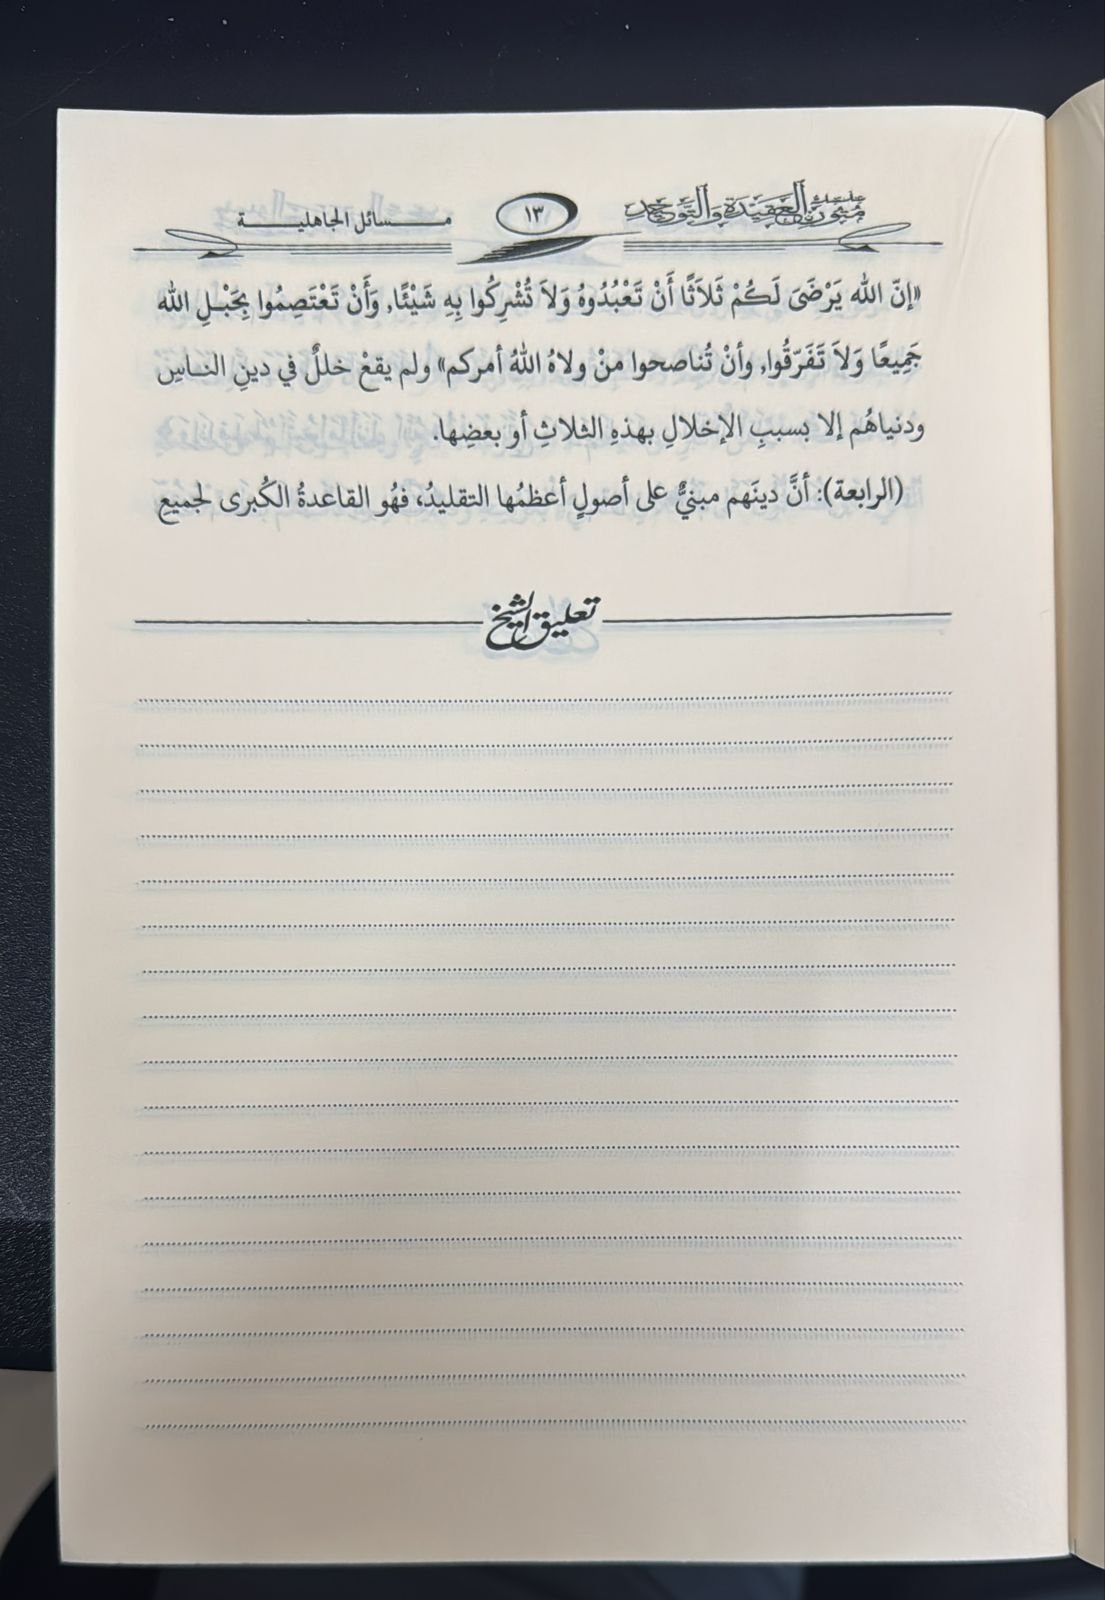 سلسلة متون العقيدة والتوحيد
١٣
مسائل الجاهلية
«إنّ الله يَرْضَىَ لَكُمْ ثَلاَثًا أَنْ تَعْبُدُوهُ وَلاَ تُشْرِكُوا بِهِ شَيْئًا، وَأَنْ تَعْتَصِمُوا بِحَبْلِ الله
جَمِيعًا وَلاَ تَفَرّقُوا، وأنْ تُناصحوا منْ ولاهُ اللهُ أمركم» ولم يقعْ خللٌ في دينِ الناسِ
ودنياهُم إلا بسببِ الإخلالِ بهذهِ الثلاثِ أو بعضِها.
(الرابعة): أنَّ دينَهم مبنيٌّ على أصولٍ أعظمُها التقليدُ، فهُو القاعدةُ الكُبرى لجميع
تعليق الشيخ